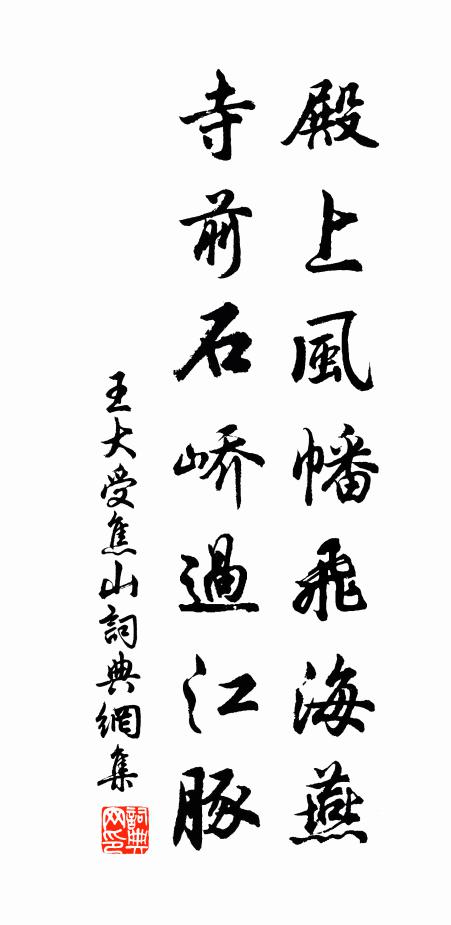 殿上風幡飛海燕
寺前石嶠過江豚
王大受焦山詞典網集
詞典网印